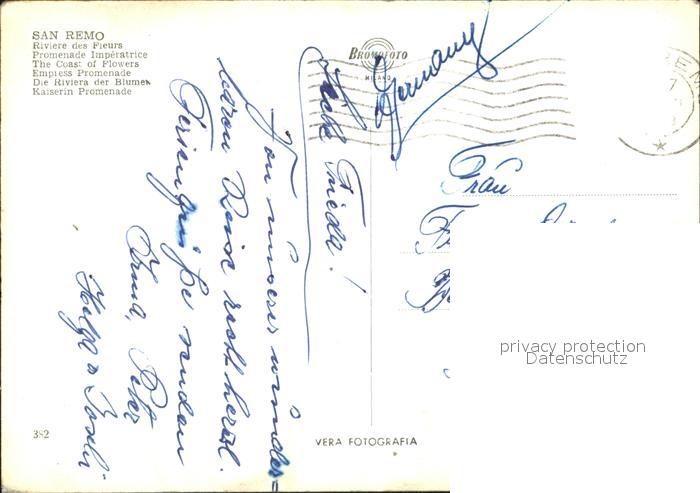 SAN REMO
Riviere des Fleurs
Promenade Impératrice
The Coast of Flowers
Empress Promenade
Die Riviera der Blumen
Kaiserin Promenade
BROMOFOTO
MILANO
Germany
Frau
Liebe Frieda!
Von unserer wunder=
baren Reise recht herzl.
Feriengrüße senden
Irma, Peter
Helga u.
382
VERA FOTOGRAFIA
privacy protection
Datenschutz